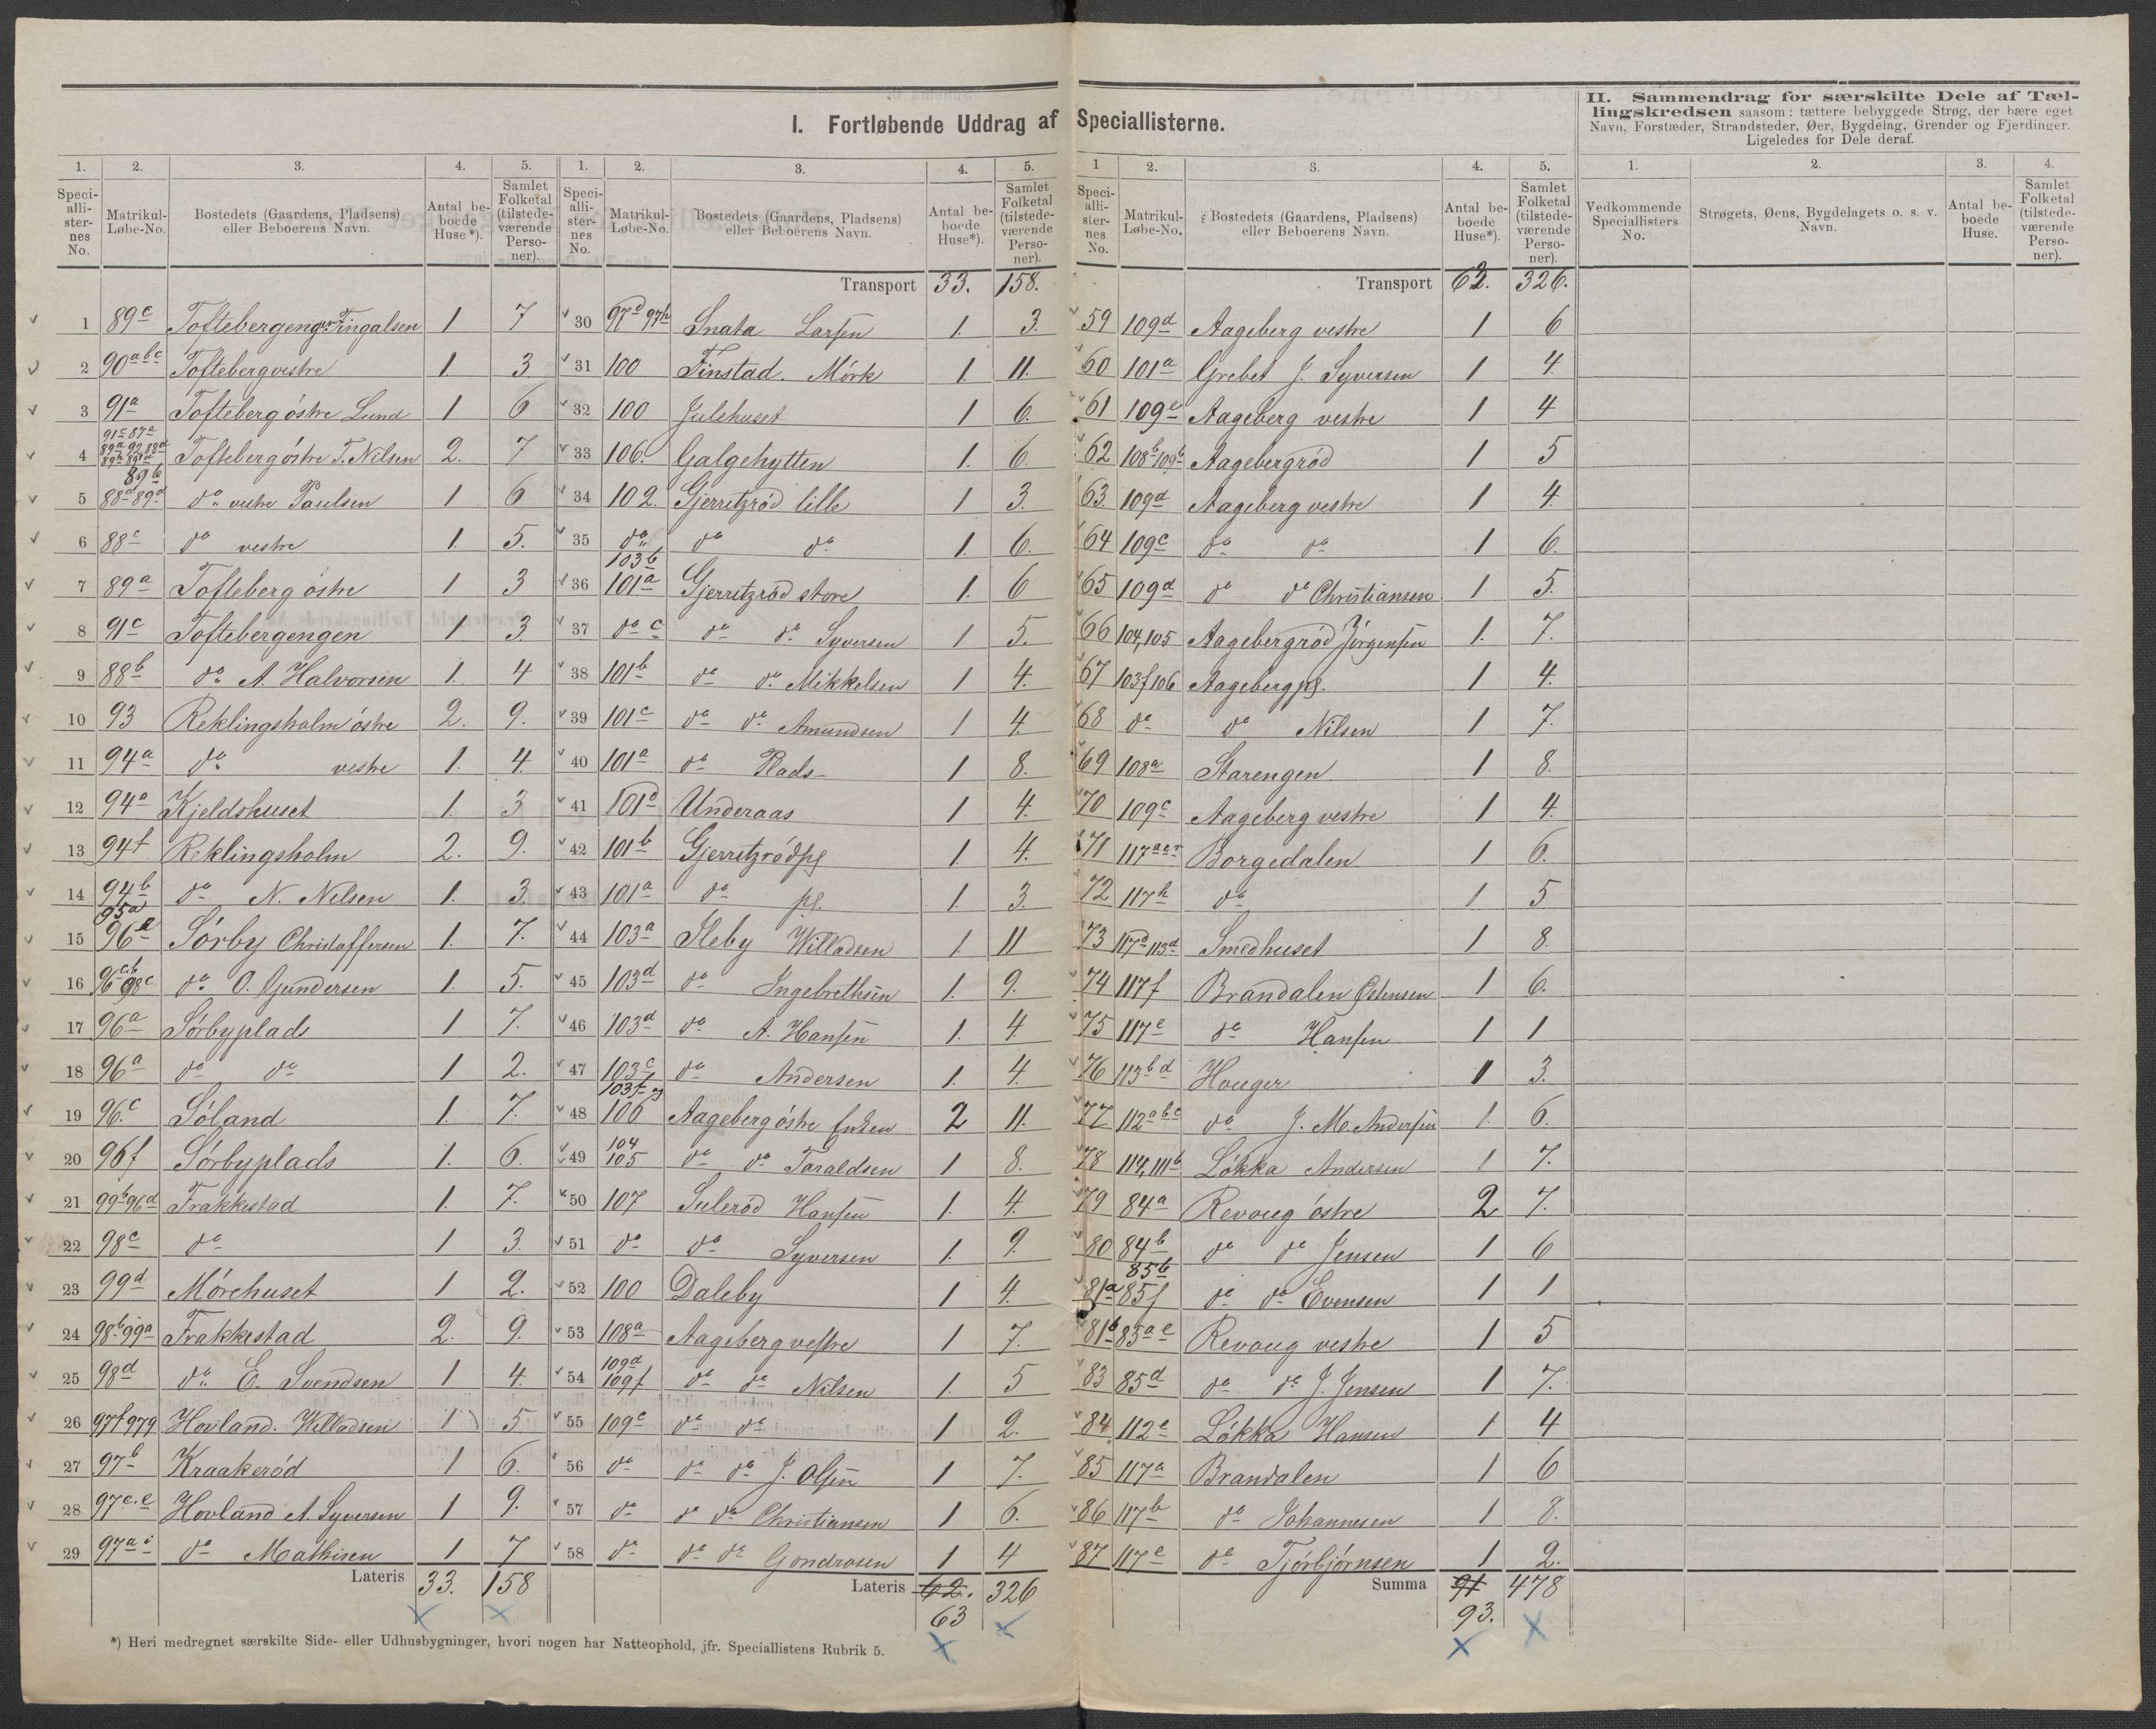 I. Fortløbende Uddrag af Speciallisterne.
II. Sammendrag for særskilte Dele af Tæl-
lingskredsen saasom: tættere bebyggede Strøg, der bære eget
Navn, Forstæder, Strandsteder, Øer, Bygdelag, Grender og Fjerdinger.
Ligeledes for Dele deraf.
1. 2. 3. 4. 5.
Speciallisternes No. Matrikul-Løbe-No. Bostedets (Gaardens, Pladsens) eller Beboerens Navn. Antal beboede Huse*). Samlet Folketal (tilstedeværende Personer).
1 89c Toftebergengen Tingalsen 1 7
2 90abc Toftebergvestre 1. 3
3 91a Toftebergöstre Lund 1 6
4 91c 87a 89a 92 88d Toftebergöstre T. Nilsen 2. 7
5 89b 88d 89d do vestre Paulsen 1 6
6 88c do vestre 1. 5.
7 89a Tofteberg östre 1 3
8 91c Toftebergengen 1 3
9 88b do A. Halvorsen 1. 4
10 93 Reklingsholm östre 2. 9.
11 94a do vestre 1. 4.
12 94a Kjeldshuset 1. 3
13 94f Reklingsholm 2. 9.
14 94b do N. Nilsen 1. 3.
15 95a 96e Sörby Christoffersen 1. 7.
16 96cb 98c do O. Gundersen 1. 5.
17 96a Sörbyplads 1 7.
18 96a do do 1 2.
19 96c Söland 1. 7.
20 96f Sörbyplads 1. 6.
21 99b 96d Frakkestad 1. 7.
22 98c do 1 3.
23 99d Mörehuset 1 2.
24 98b 99a Frakkestad 2. 9.
25 98d do E. Svendsen 1 4.
26 97f 97g Hovland. Willadsen 1 5
27 97b Kraakeröd 1 6.
28 97c.e Hovland A. Syversen 1 9.
29 97a i do Mathisen 1 7
Lateris 33. 158
1. 2. 3. 4. 5.
Speciallisternes No. Matrikul-Løbe-No. Bostedets (Gaardens, Pladsens) eller Beboerens Navn. Antal beboede Huse*). Samlet Folketal (tilstedeværende Personer).
Transport 33. 158.
30 97d 97h Snata Larsen 1. 3.
31 100 Finstad. Mörk 1. 11.
32 100 Julehuset 1 6.
33 106. Galgehytten 1. 6.
34 102. Gjerretzröd lille 1 3.
35 do do do 1. 6.
36 103b 101a Gjerretzröd store 1. 6
37 do c do do Syversen 1 5.
38 101b do do Mikkelsen 1 4.
39 101c do do Amundsen 1 4.
40 101a do Plads 1 8.
41 101d Underaas 1 4.
42 101b Gjerretzrödpl 1. 4.
43 101a do pl. 1. 3.
44 103a Ileby Willadsen 1 11
45 103d do Ingebrethsen 1. 9.
46 103d do A. Hansen 1. 4.
47 103c do Andersen 1. 4.
48 103f g 106 Aagebergöstre Enken 2 11.
49 104 105 do do Taraldsen 1 8.
50 107 Suleröd Hansen 1. 4.
51 do do Syversen 1. 9.
52 100 Daleby 1 4.
53 108a Aagebergvestre 1 7.
54 109d 109f do do Nilsen 1. 5
55 109c do do 1 2.
56 do do do J. Olsen 1 7.
57 do do do Christiansen 1 6.
58 do do do Gondrosen 1 4
Lateris 62. 326
63
1 2. 3. 4. 5.
Speciallisternes No. Matrikul-Løbe-No. Bostedets (Gaardens, Pladsens) eller Beboerens Navn. Antal beboede Huse*). Samlet Folketal (tilstedeværende Personer).
Transport 63. 326.
59 109d Aageberg vestre 1 6
60 101a Grebet J. Syversen 1 4.
61 109e Aageberg vestre 1 4
62 108b 109b Aagebergröd 1 5
63. 109d Aageberg vestre 1 4.
64 109c do do 1 6.
65 109d do do Christiansen 1 5.
66 104,105 Aagebergröd Jörgensen 1. 7.
67 103f 106 Aagebergpl. 1 4.
68 do do Nilsen 1 7.
69 108a Starengen 1 8.
70 109c Aageberg vestre 1 4.
71 117aer Borgedalen 1 6.
72 117h do 1 5
73 117d 113d Smedhuset 1 8.
74 117f Brandalen Östensen 1 6.
75 117e do Hansen 1 1
76 113b d Houger 1 3.
77 112abc do J. M. Andersen 1. 6.
78 114, 111b Lökka Andersen 1 7.
79 84a Revoug östre 2 7.
80 84b do do Jensen 1 6
81a 85b 85f do do Evensen 1 1
81b 85a e Revoug vestre 1 5
83 85d do do J. Jensen 1 7.
84 112e Lökka Hansen 1 4
85 117a Brandalen 1 6
86 117b do Johannesen 1 8.
87 117e do Tjörbjörnsen 1 2.
Summa 91 478
93.
1. 2. 3. 4.
Vedkommende Speciallisters No. Strøgets, Øens, Bygdelagets o. s. v. Navn. Antal beboede Huse. Samlet Folketal (tilstedeværende Personer).
*) Heri medregnet særskilte Side- eller Udhusbygninger, hvori nogen har Natteophold, jfr. Speciallistens Rubrik 5.